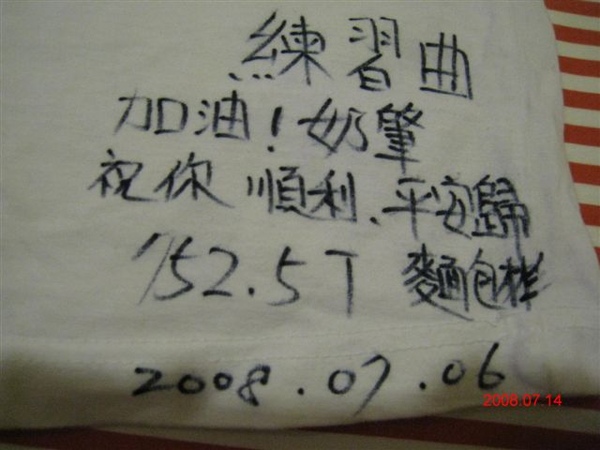 練習曲
加油！奶肇
祝你 順利、平安歸
152.5T 麵包樹
2008.07.06
2008.07.14